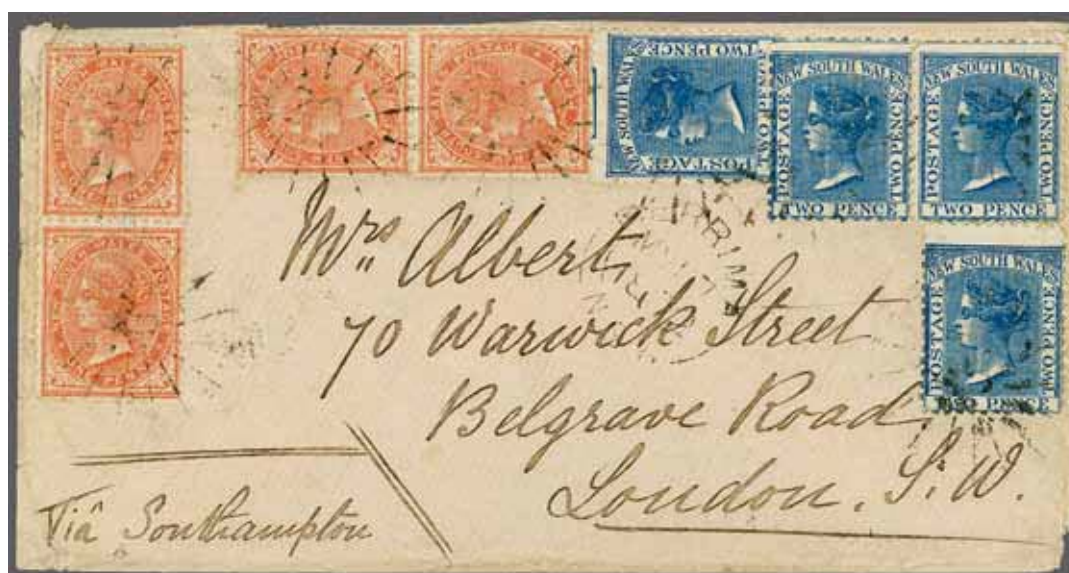 NEW SOUTH WALES
POSTAGE
TWO PENCE
TWO PENCE
NEW SOUTH WALES
POSTAGE
TWO PENCE
TWO PENCE
NEW SOUTH WALES
POSTAGE
TWO PENCE
TWO PENCE
NEW SOUTH WALES
POSTAGE
TWO PENCE
TWO PENCE
Mrs" Albert
70 Warwick Street
Belgrave Road
London. S.W.
Viâ Southampton